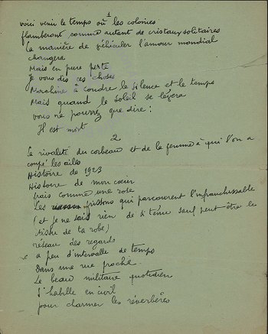 1
voici venir le temps où les colonies
flamberont comme autant de cristaux solitaires
la manière de véhiculer l'amour mondial
changera
Mais en pure perte
Je vous dis ces choses
Machine à coudre le silence et le temps
Mais quand le soleil se lèvera
vous ne pourrez que dire :
Il est mort
2.
La rivalité du corbeau et de la femme à qui l'on a
coupé les ailes
Histoire de 1923
Histoire de mon cœur
puis comme une rose
Les frissons qui parcourent l'infranchissable
(et je ne sais rien de si ténu sauf peut être la
fiche de la robe)
réseau des regards
a peu d'intervalle de temps
Dans une rue proche
le beau militaire quotidien
s'habille en civil
pour charmer les réverbères